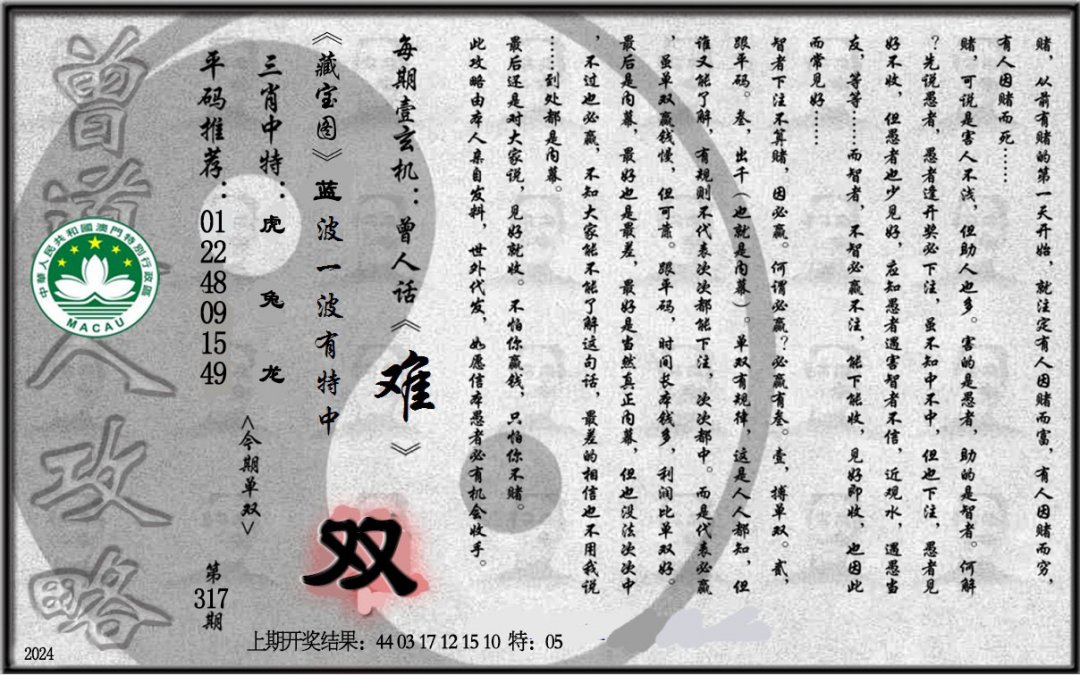 赌，从前有赌的第一天开始，就注定有人因赌而富，有人因赌而穷，
有人因赌而死……
赌，可说是害人不浅，但助人也多。害的是愚者，助的是智者。何解
？先说愚者，愚者逢开奖必下注，虽不知中不中，但也下注，愚者见
好不收，但愚者也少见好，应知愚者遇害智者不信，近观水，遇愚当
友，等等……而智者，不智必赢不注，能下能收，见好即收，也因此
而常见好……
智者下注不算赌，因必赢。何谓必赢？必赢有叁。壹，搏单双。贰，
跟平码。叁，出千（也就是内幕）。单双有规律，这是人人都知，但
谁又能了解，有规则不代表次次都能下注，次次都中。而是代表必赢
，虽单双赢钱慢，但可靠。跟平码，时间长本钱多，利润比单双好。
最后是内幕，最好也是最差，最好是当然真正内幕，但也没法次次中
，不过也必赢，不知大家能不能了解这句话，最差的相信也不用我说
……到处都是内幕。
最后还是对大家说，见好就收。不怕你赢钱，只怕你不赌。
此攻略由本人亲自发料，世外代发，如愿信本愚者必有机会收手。
每期壹玄机：曾人话《难》
《藏宝图》蓝波一波有特中
双
三肖中特：虎兔龙
<今期单双>
平码推荐：01 22 48 09 15 49
第317期
曾道人攻略
中華人民共和國澳門特別行政區
MACAU
上期开奖结果：44 03 17 12 15 10 特：05
2024